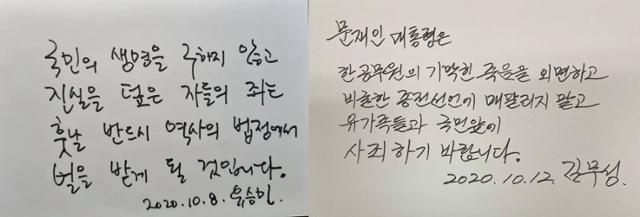 국민의 생명을 구하지 않고
진실을 덮은 자들의 죄는
훗날 반드시 역사의 법정에서
벌을 받게 될 것입니다.
2020.10.8. 유승민.
문재인 대통령은
한 공무원의 기막힌 죽음을 외면하고
비호한 종전선언에 매달리지 말고
유가족들과 국민앞에
사죄하기 바랍니다.
2020.10.12. 김무성.